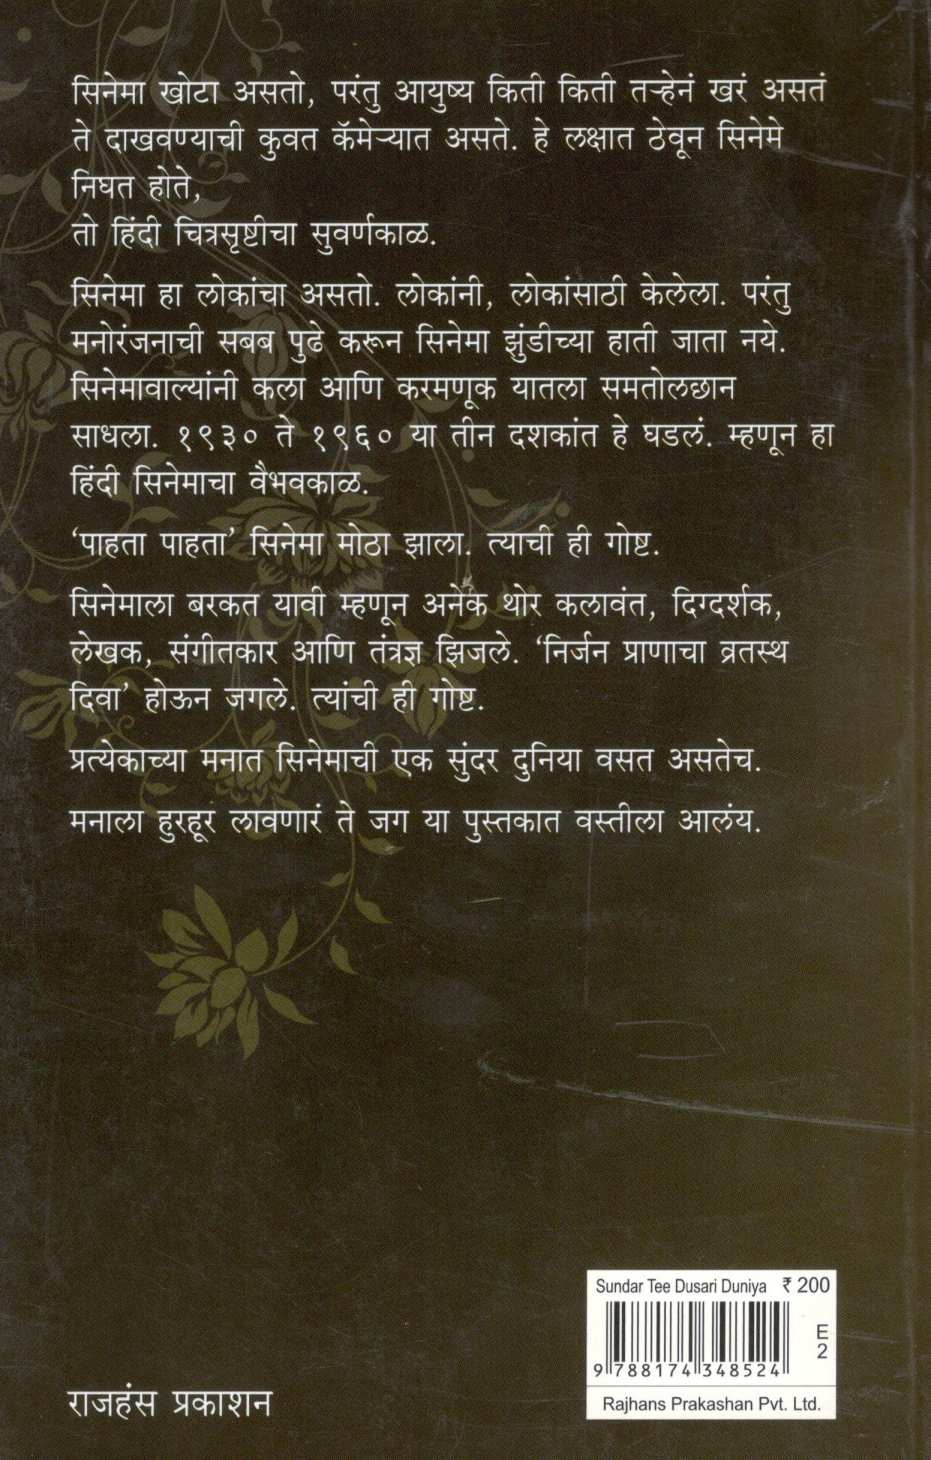 सिनेमा खोटा असतो, परंतु आयुष्य किती किती तऱ्हेनं खरं असतं
ते दाखवण्याची कुवत कॅमेऱ्यात असते. हे लक्षात ठेवून सिनेमे
निघत होते,
तो हिंदी चित्रसृष्टीचा सुवर्णकाळ.
सिनेमा हा लोकांचा असतो. लोकांनी, लोकांसाठी केलेला. परंतु
मनोरंजनाची सबब पुढे करून सिनेमा झुंडीच्या हाती जाता नये.
सिनेमावाल्यांनी कला आणि करमणूक यातला समतोलछान
साधला. १९३० ते १९६० या तीन दशकांत हे घडलं. म्हणून हा
हिंदी सिनेमाचा वैभवकाळ.
‘पाहता पाहता’ सिनेमा मोठा झाला. त्याची ही गोष्ट.
सिनेमाला बरकत यावी म्हणून अनेक थोर कलावंत, दिग्दर्शक,
लेखक, संगीतकार आणि तंत्रज्ञ झिजले. ‘निर्जन प्राणाचा व्रतस्थ
दिवा’ होऊन जगले. त्यांची ही गोष्ट.
प्रत्येकाच्या मनात सिनेमाची एक सुंदर दुनिया वसत असतेच.
मनाला हुरहूर लावणारं ते जग या पुस्तकात वस्तीला आलंय.
Sundar Tee Dusari Duniya ₹ 200
E
2
9 788174 348524
Rajhans Prakashan Pvt. Ltd.
राजहंस प्रकाशन